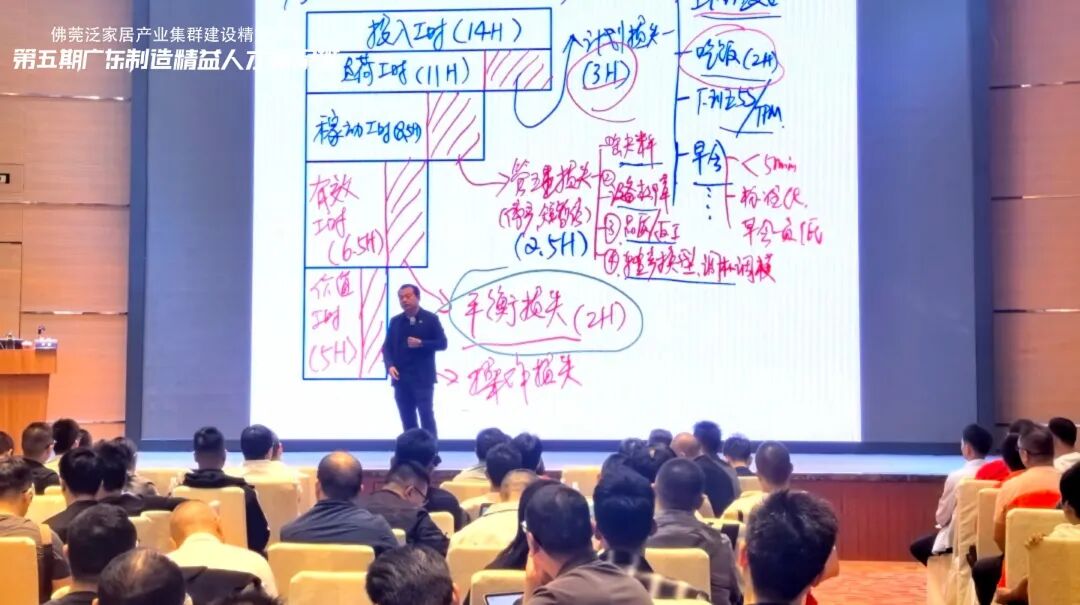 佛莞泛家居产业集群建设精
第五期广东制造精益人才
投入工时(14H)
负荷工时(11H)
计划损失
(3H)
吃饭(2H)
下班5S/TPM
稼动工时(8.5H)
早会
<5min
早会效低
管理损失
(停产、短暂停)
(2.5H)
②设备故障
③品质/返工
④转产换型、调机调模
有效
工时
(6.5H)
平衡损失(2H)
价值
工时
(5H)
操作损失